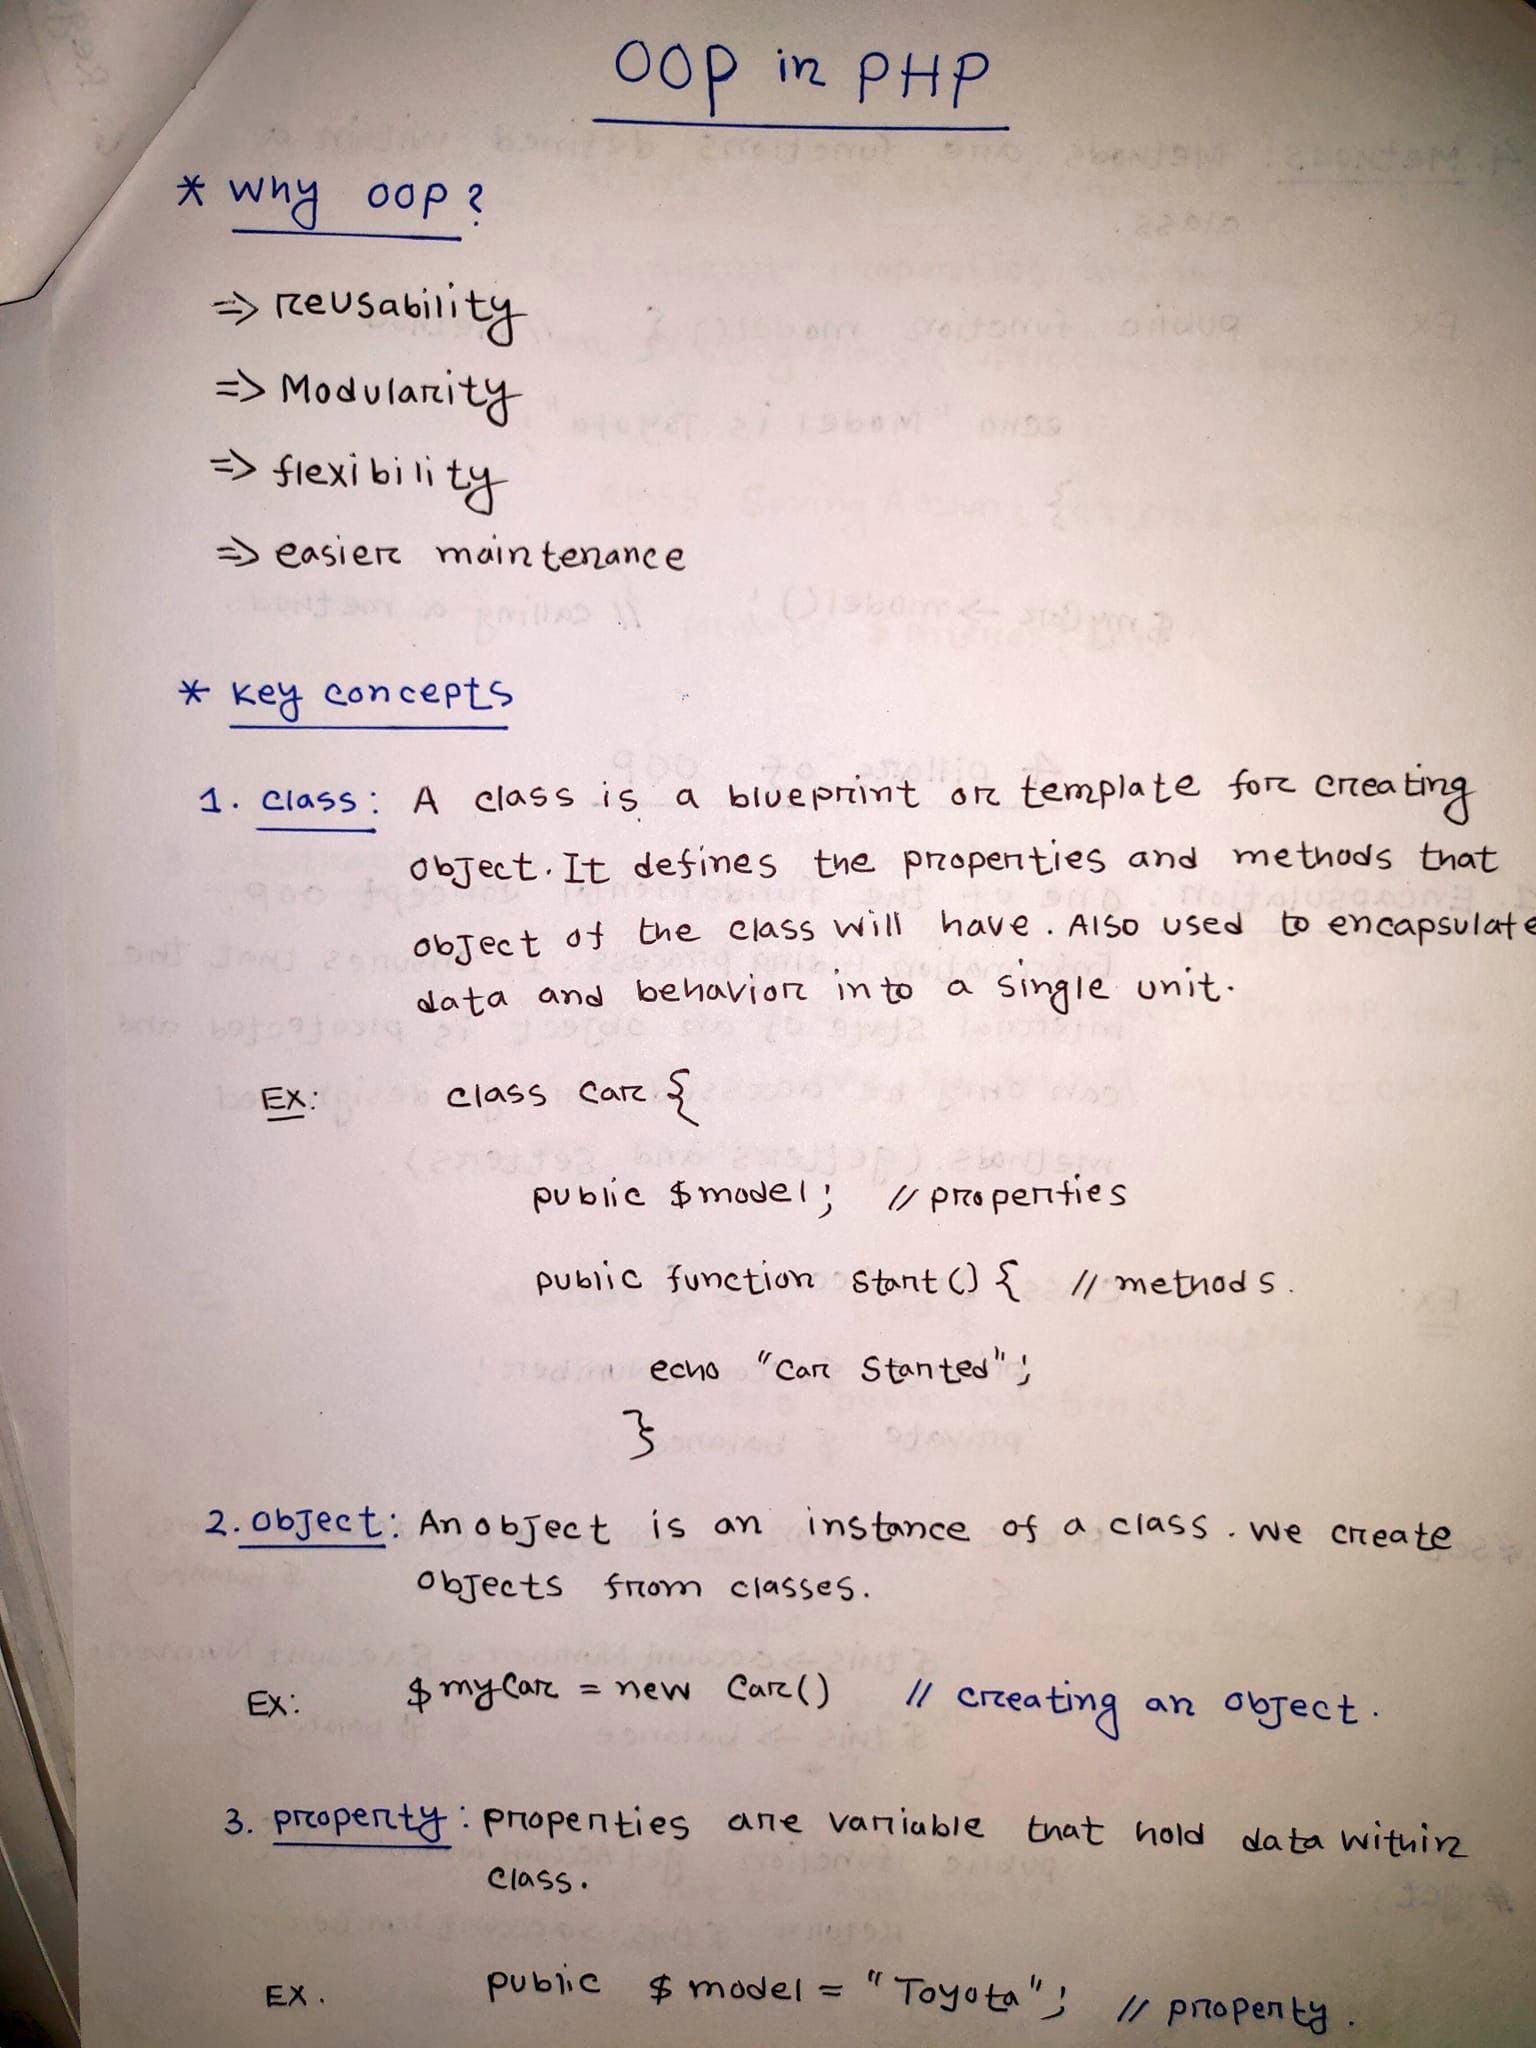 OOP in PHP
* Why OOP?
=> reusability
=> Modularity
=> flexibility
=> easier maintenance
* Key concepts
1. Class: A class is a blueprint or template for creating
object. It defines the properties and methods that
object of the class will have. Also used to encapsulate
data and behavior into a single unit.
EX: class Car {
public $model; // properties
public function start() { // methods.
echo "Car Started";
}
2. Object: An object is an instance of a class. We create
objects from classes.
EX: $myCar = new Car() // creating an object.
3. property: properties are variable that hold data within
class.
EX. public $model = "Toyota"; // property.